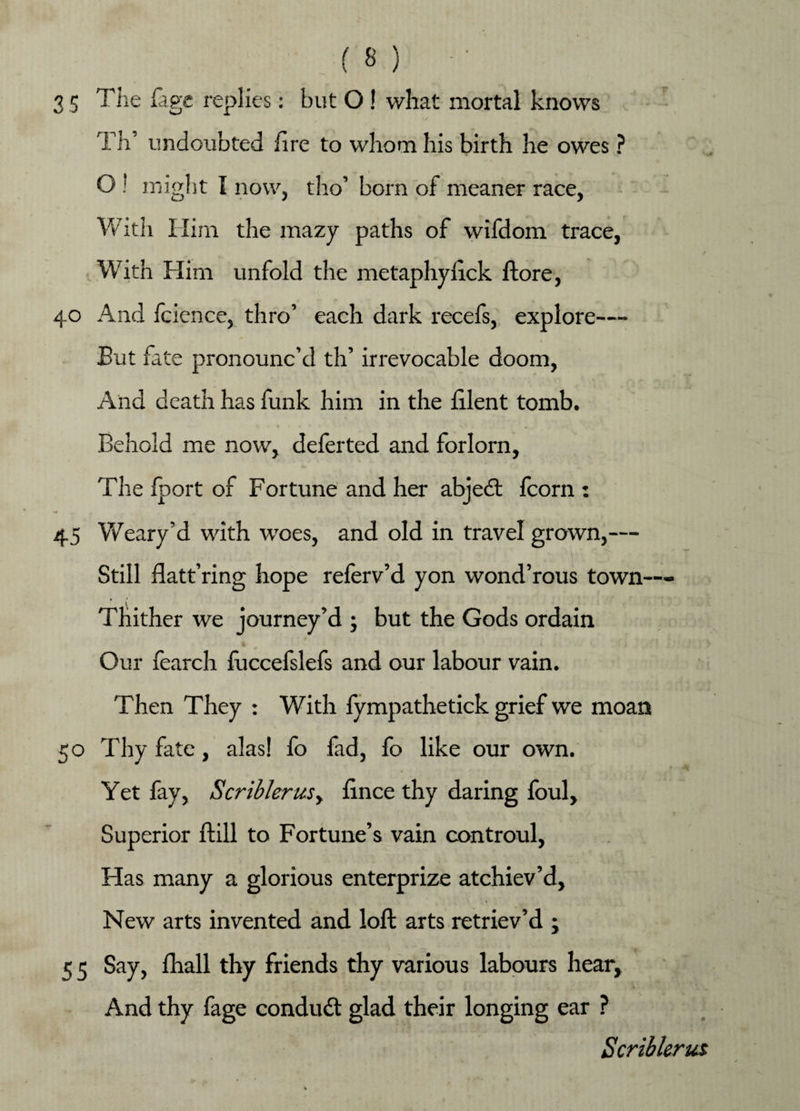 ( 8 )
35 The ſage replies: but O! what mortal knows
Th' undoubted ſire to whom his birth he owes?
O! might I now, tho' born of meaner race,
With Him the mazy paths of wiſdom trace,
With Him unfold the metaphyſick ſtore,
40 And ſcience, thro' each dark receſs, explore—
But fate pronounc'd th' irrevocable doom,
And death has ſunk him in the ſilent tomb.
Behold me now, deſerted and forlorn,
The ſport of Fortune and her abject ſcorn:
45 Weary'd with woes, and old in travel grown,—
Still flatt'ring hope reſerv'd yon wond'rous town—
Thither we journey'd; but the Gods ordain
Our ſearch ſucceſsleſs and our labour vain.
Then They: With ſympathetick grief we moan
50 Thy fate, alas! ſo ſad, ſo like our own.
Yet ſay, Scriblerus, ſince thy daring ſoul,
Superior ſtill to Fortune's vain controul,
Has many a glorious enterprize atchiev'd,
New arts invented and loſt arts retriev'd;
55 Say, ſhall thy friends thy various labours hear,
And thy ſage conduct glad their longing ear?
Scriblerus